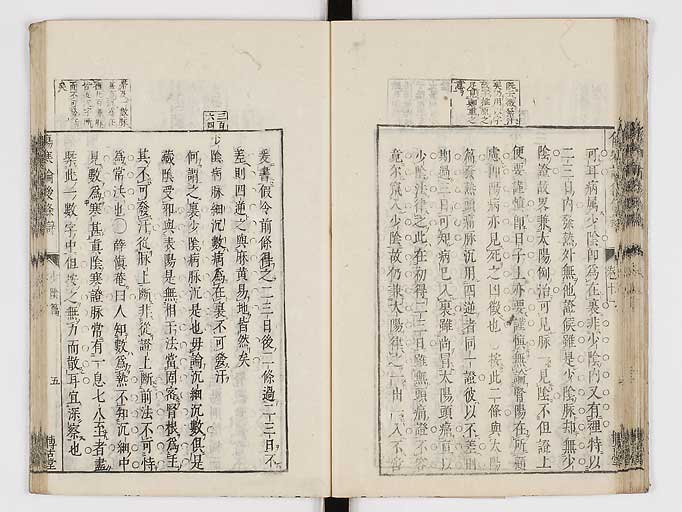 可耳病屬少陰即為在裏非少陰内又有裡特以
二三日内發熱外無他證候雖是少陰脉却無少
陰證故畧兼太陽例治可見脉一見陰不但證上
便要謹慎即日子上亦要謹慎無論腎陽在所適
慮即陽病亦見死之凶徵也 按此二條與太陽
篇發熱頭痛脉沉用四逆者同一證彼以不差則
期過三日可知病已入裏雖尚冒太陽頭痛直以
少陰法律之此在初得二三日雖無頭痛證不容
竟尔竄入少陰故仍兼太陽律之一出一入不啻
爰書假令前條得之二三日後二條過二三日不
差則四逆之與麻黄易地皆然矣
三百六四
少陰病脉細沉數病為在裏不可發汗
何謂之裏少陰病脉沉是也毋論沉細沉數俱是
藏陰受邪與表陽是無相干法當固密腎根為主
其不可發汗從脉上斷非從證上斷前法不可恃
為常法也 薛慎菴曰人知數為熱不知沉細中
見數為寒甚真陰寒證脉常有一息七八至者盡
槩此一數字中但按之無力而散耳宜深察也
傷寒論後條辯
少陰篇
五
博古堂
卷十一